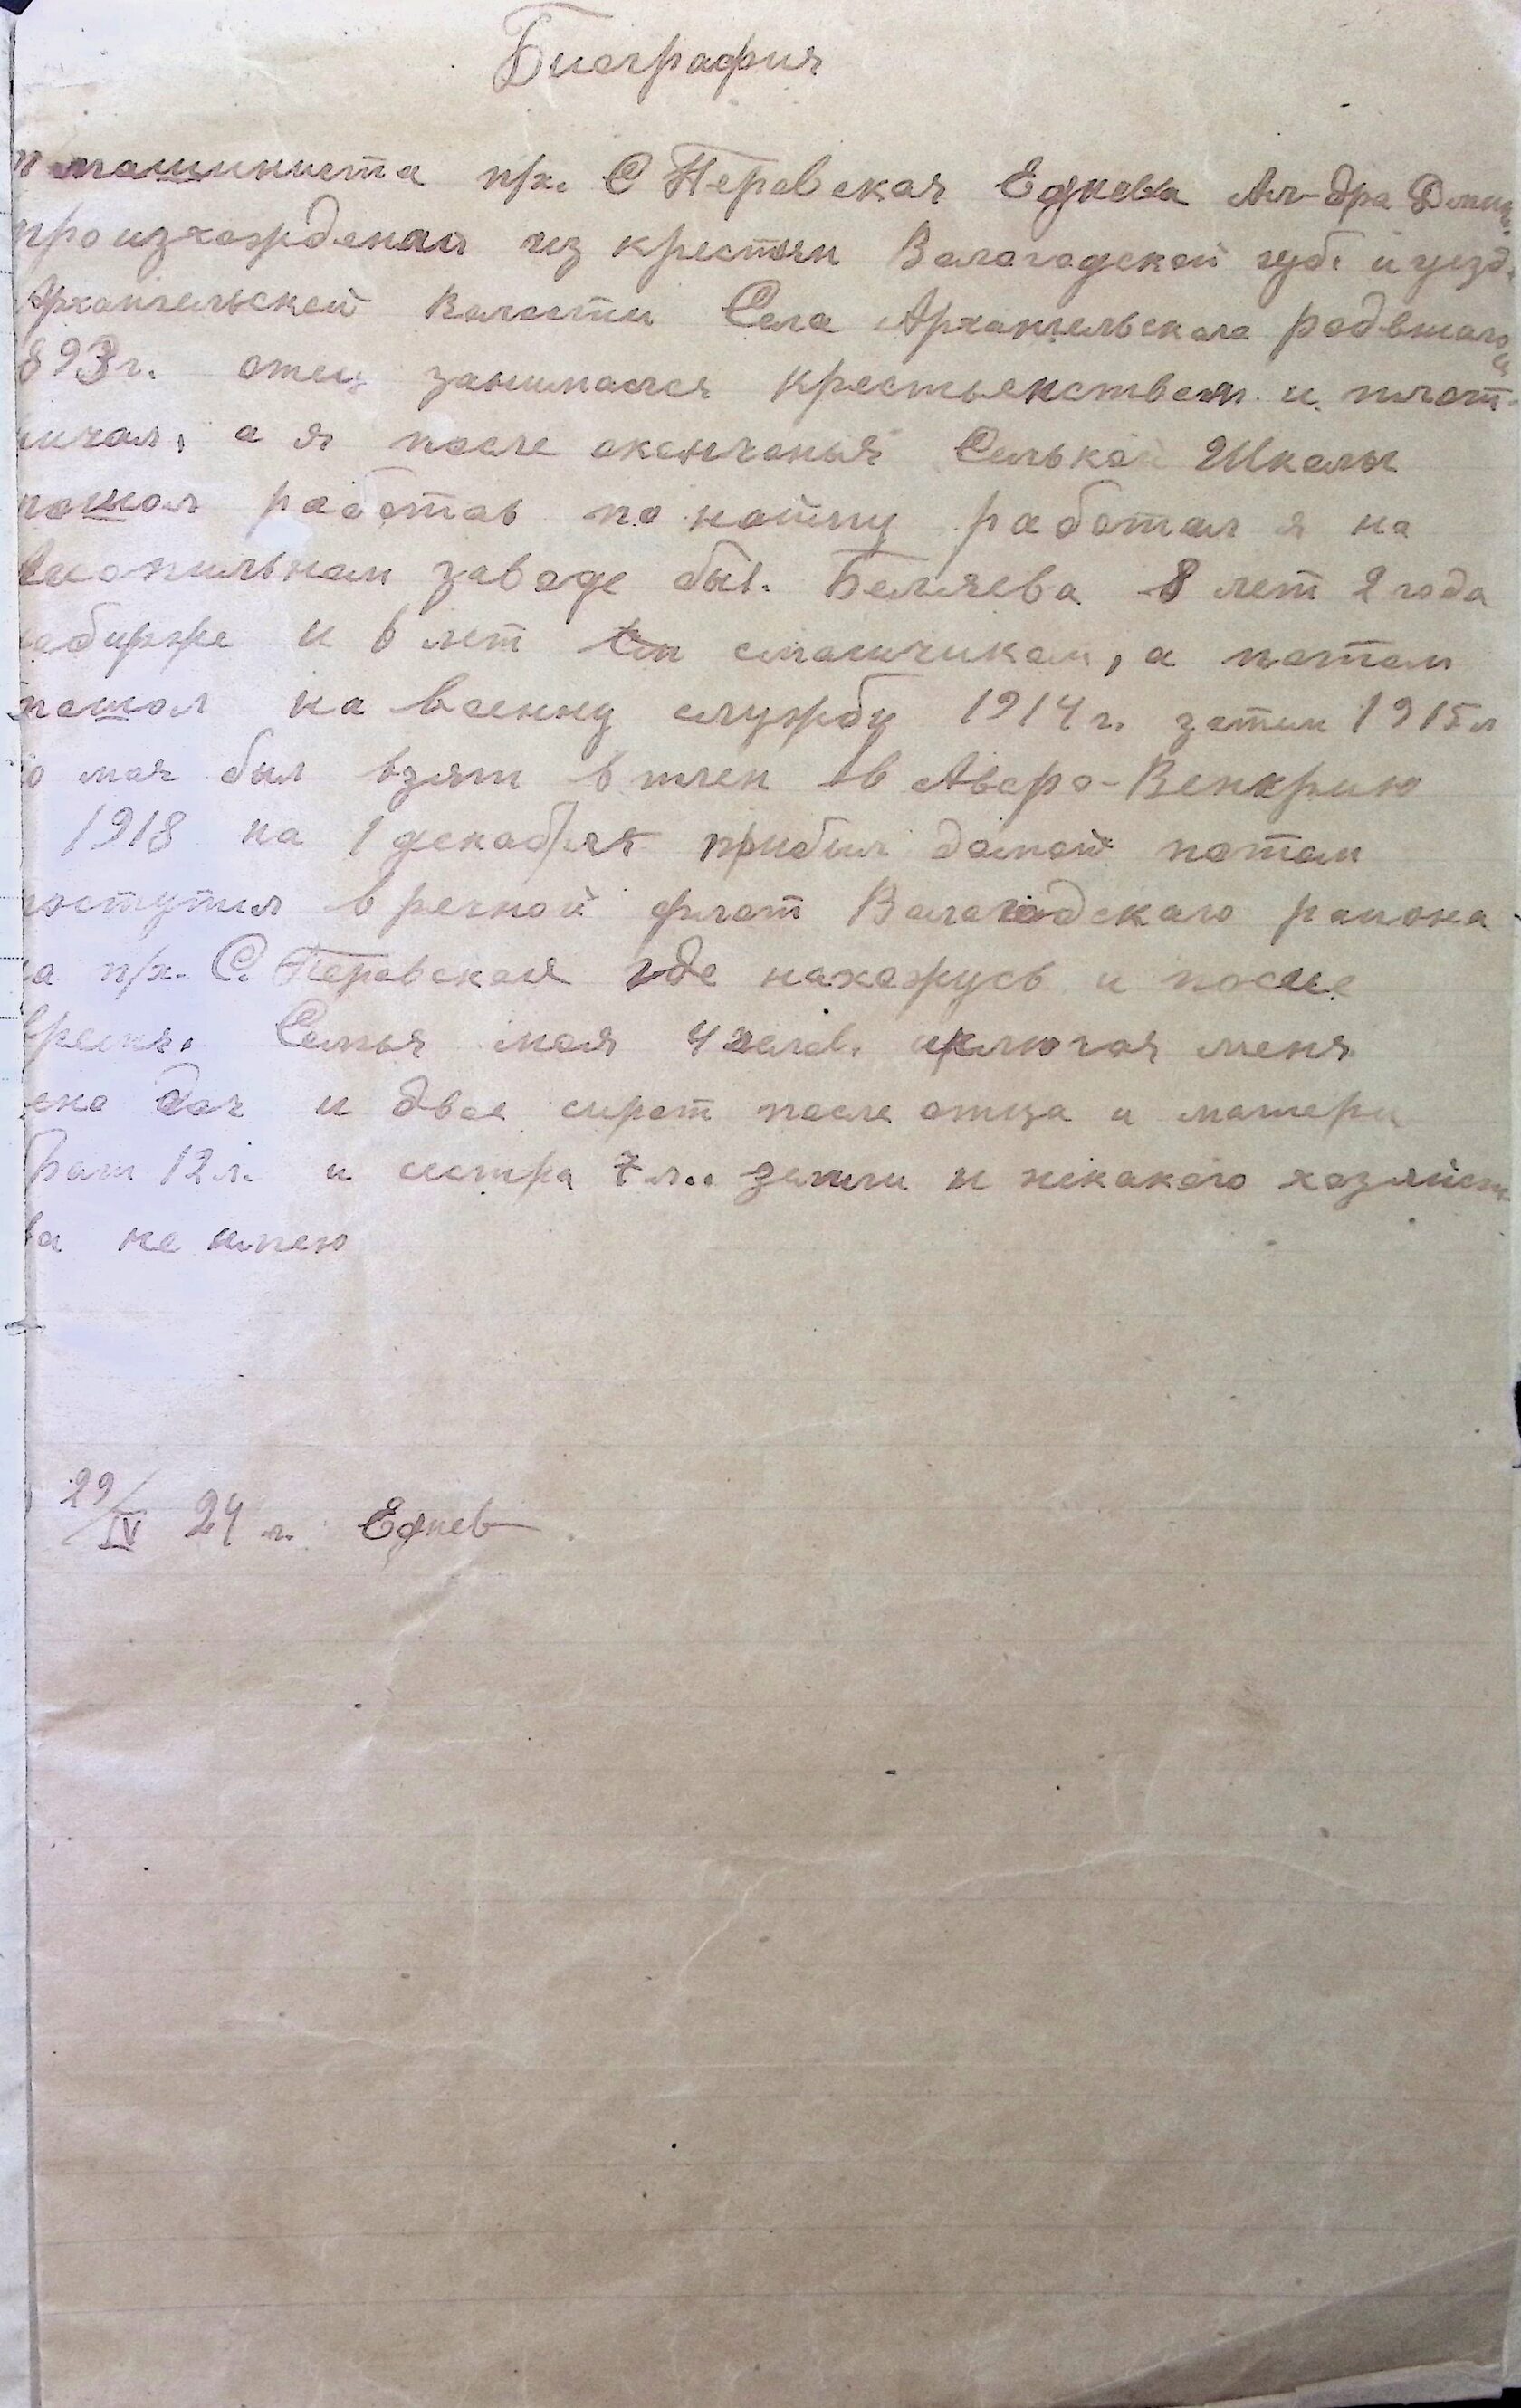 Биография
машиниста п/х. С Перовская Еднева Ал-дра Дмит.
произхождения из крестьян Вологодской губ. и уезд.
Архангельской Валости Села Архангельскаго родвшагося
893 г. отец занимался крестьянством и плот-
ничал, а я после оконченья Селькой Школы
пошол работав по найму работал я на
лесопильном заводе быв. Беляева 8 лет 2 года
набирже и 6 лет станчиком, а потом
пошол на военну службу 1914 г. затем 1915 г
мая был взят в плен в Авсро-Венкрию
1918 на 1 декабря прибыл домой потом
поступил в речной флот Вологодскаго раиона
на п/х. С. Перовская где нахожусь и после
время. Семья моя 4 челов. включая меня
жена доч и двое сирот после отца и матери
брат 12 л. и сестра 7 л.. земли и некакого хозяйст-
ва не имею
29/IV 24 г. Еднев